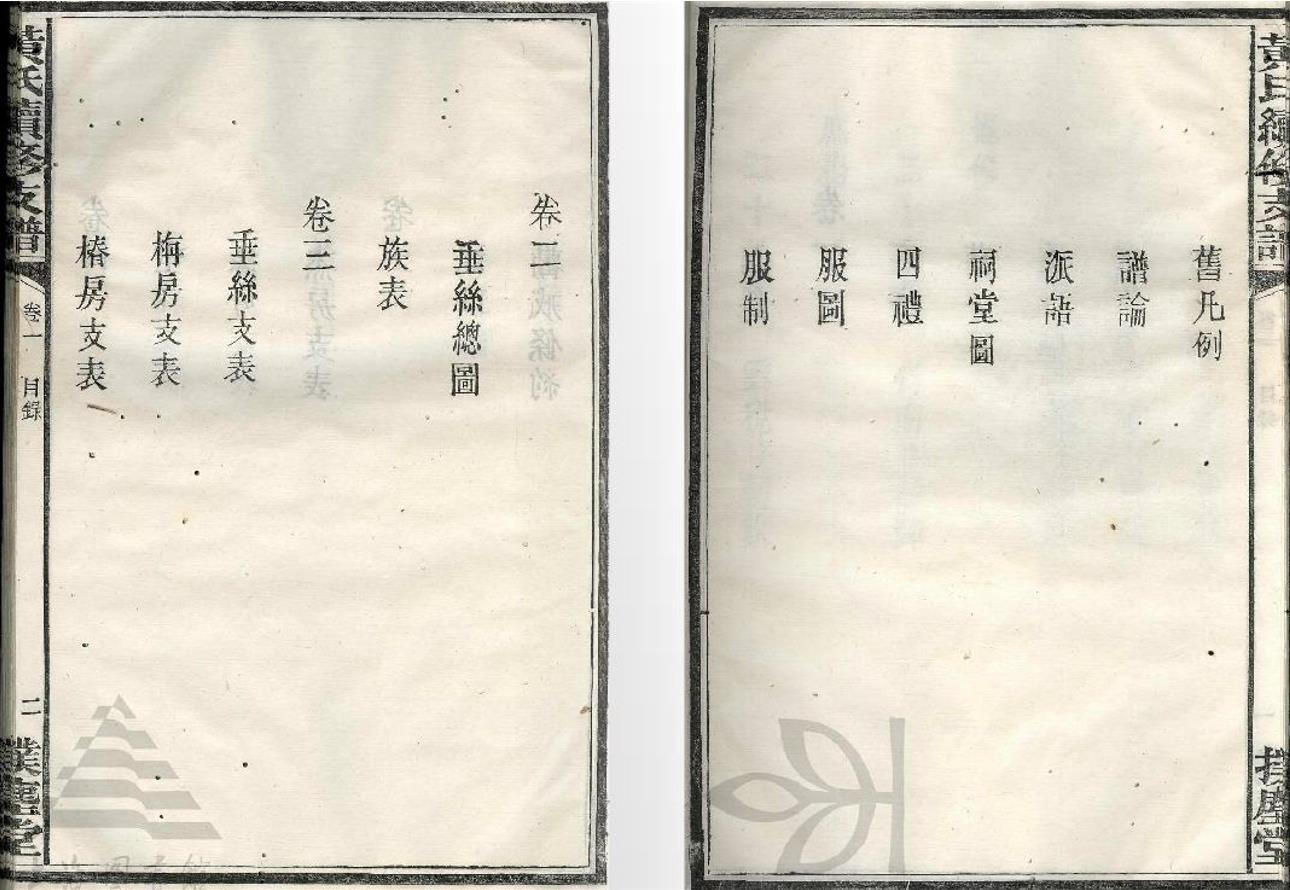 黃氏續修支譜
撲塵堂
舊凡例
譜論
派語
祠堂圖
四禮
服圖
服制
卷二
垂絲總圖
族表
卷三
垂絲支表
梅房支表
椿房支表
黃氏續修支譜
卷一
目錄
二
撲塵堂